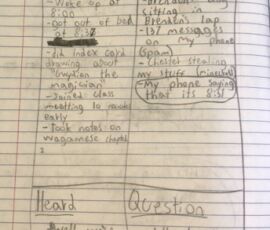 -Woke up at
8:00
-Got out of bed
at 8:37
-th index card
drawing about
the
magician"
-Joined class
meeting 10 minutes
early
-Took notes on
wagamese chapter
sitting in
Brenden's lap
-137 messages
on my phone
(spam)
-Chester stealing
my stuff
-My phone saying
that its 8:31
Heard
Question